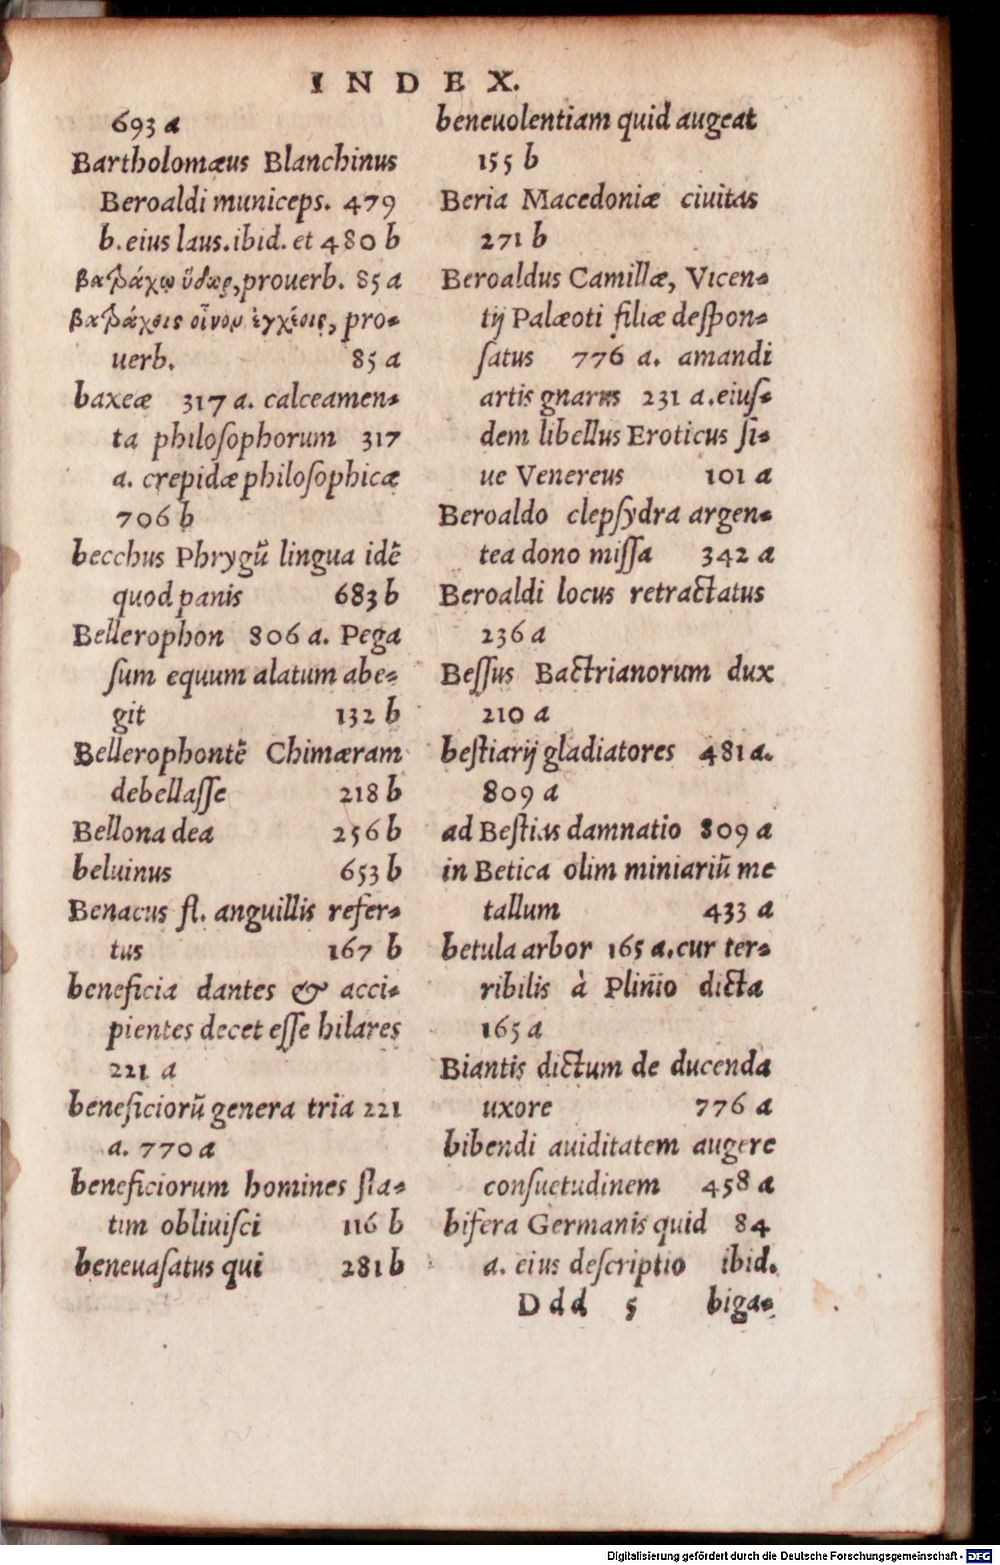 INDEX.
693 a
Bartholomæus Blanchinus
Beroaldi municeps. 479
b. eius laus. ibid. et 480 b
βατράχῳ ὕδωρ, prouerb. 85 a
βατράχοις οἶνον ἐγχέεις, pro-
uerb. 85 a
baxeæ 317 a. calceamen-
ta philoſophorum 317
a. crepidæ philoſophicæ
706 b
becchus Phrygũ lingua idẽ
quod panis 683 b
Bellerophon 806 a. Pega
ſum equum alatum abe-
git 132 b
Bellerophontẽ Chimæram
debellaſſe 218 b
Bellona dea 256 b
beluinus 653 b
Benacus fl. anguillis refer-
tus 167 b
beneficia dantes & acci-
pientes decet eſſe hilares
221 a
beneficiorũ genera tria 221
a. 770 a
beneficiorum homines ſta-
tim obliuiſci 116 b
beneuaſatus qui 281 b
beneuolentiam quid augeat
155 b
Beria Macedoniæ ciuitas
271 b
Beroaldus Camillæ, Vicen-
tij Palæoti filiæ deſpon-
ſatus 776 a. amandi
artis gnarus 231 a. eiuſ-
dem libellus Eroticus ſi-
ue Venereus 101 a
Beroaldo clepſydra argen-
tea dono miſſa 342 a
Beroaldi locus retractatus
236 a
Beſſus Bactrianorum dux
210 a
beſtiarij gladiatores 481 a.
809 a
ad Beſtias damnatio 809 a
in Betica olim miniariũ me
tallum 433 a
betula arbor 165 a. cur ter-
ribilis à Plinio dicta
165 a
Biantis dictum de ducenda
uxore 776 a
bibendi auiditatem augere
conſuetudinem 458 a
bifera Germanis quid 84
a. eius deſcriptio ibid.
Ddd 5 biga-
Digitalisierung gefördert durch die Deutsche Forschungsgemeinschaft - DFG